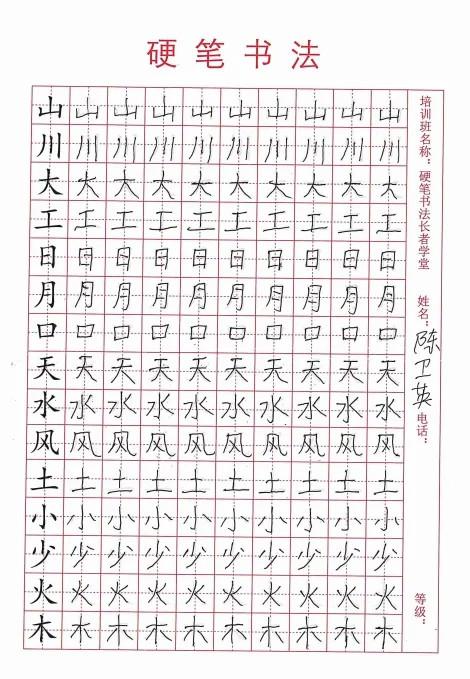 硬笔书法
山山山山山山山山山山
川川川川川川川川川川
大大大大大大大大大大
工工工工工工工工工工
日日日日日日日日日日
月月月月月月月月月月
口口口口口口口口口口
天天天天天天天天天天
水水水水水水水水水水
风风风风风风风风风风
土土土土土土土土土土
小小小小小小小小小小
少少少少少少少少少少
火火火火火火火火火火
木木木木木木木木木木
培训班名称：硬笔书法长者学堂 姓名：陈卫英 电话： 等级：